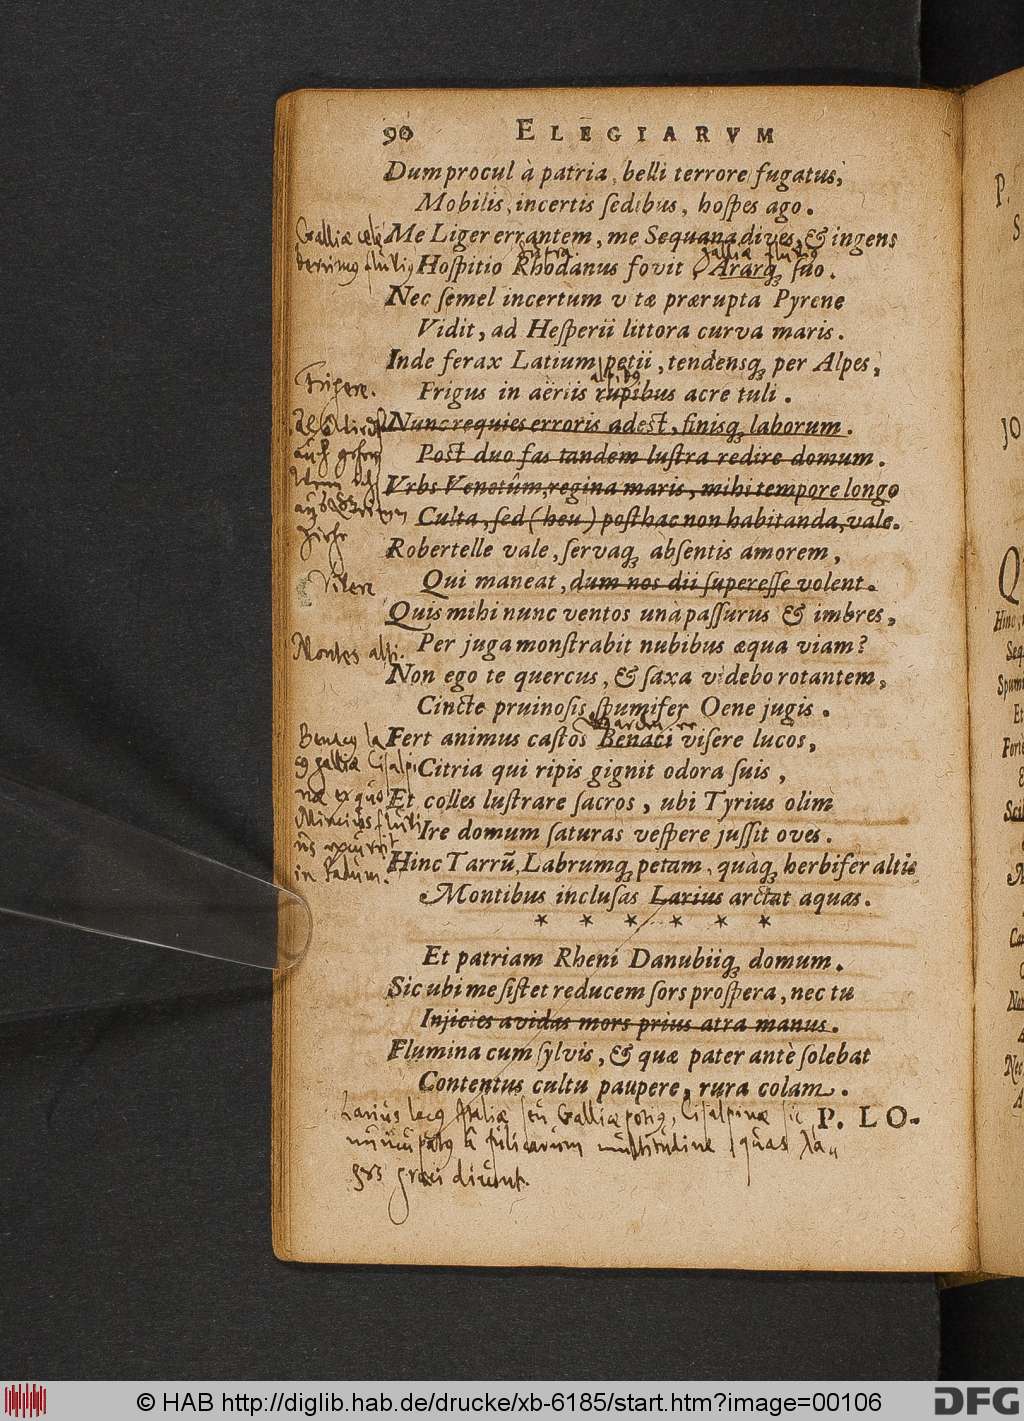 90 ELEGIARVM
Dum procul à patria, belli terrore fugatus,
Mobilis, incertis ſedibus, hoſpes ago.
Me Liger errantem, me Sequana dives, & ingens
Hoſpitio Rhodanus fovit Ararq; ſuo.
Nec ſemel incertum v tæ prærupta Pyrene
Vidit, ad Heſperii littora curva maris.
Inde ferax Latium petii, tendensq; per Alpes,
Frigus in aëriis rupibus acre tuli.
Nunc requies erroris adest, finisq; laborum.
Post duo fas tandem luſtra redire domum.
Vrbs Venetûm, regina maris, mihi tempore longo
Culta, ſed (heu) poſthac non habitanda, vale.
Robertelle vale, ſervaq; abſentis amorem,
Qui maneat, dum nos dii ſupereſſe volent.
Quis mihi nunc ventos unà paſſurus & imbres,
Per juga monſtrabit nubibus æqua viam?
Non ego te quercus, & ſaxa videbo rotantem,
Cincte pruinoſis ſpumifer Oene jugis.
Fert animus caſtos Benaci viſere lucos,
Citria qui ripis gignit odora ſuis,
Et colles luſtrare ſacros, ubi Tyrius olim
Ire domum ſaturas veſpere juſſit oves.
Hinc Tarrũ, Labrumq; petam, quàq; herbifer altis
Montibus incluſas Larius arctat aquas.
* * * * * *
Et patriam Rheni Danubiiq; domum.
Sic ubi me ſiſtet reducem ſors proſpera, nec tu
Injicies avidas mors prius atra manus.
Flumina cum ſylvis, & quæ pater antè ſolebat
Contentus cultu paupere, rura colam.
P. LO-
Galliæ
Frigere.
Vilere
Montes alti.
galliæ Cisalpi
næ ex quo
Mincius fluvi
us excurrit
in Padum.
Larius lacus Italiæ seu Galliæ potius, Cisalpinæ sic
nuncupatus à fulicarum multitudine, quas λα
græci dicunt.
P.
JO
© HAB http://diglib.hab.de/drucke/xb-6185/start.htm?image=00106
DFG